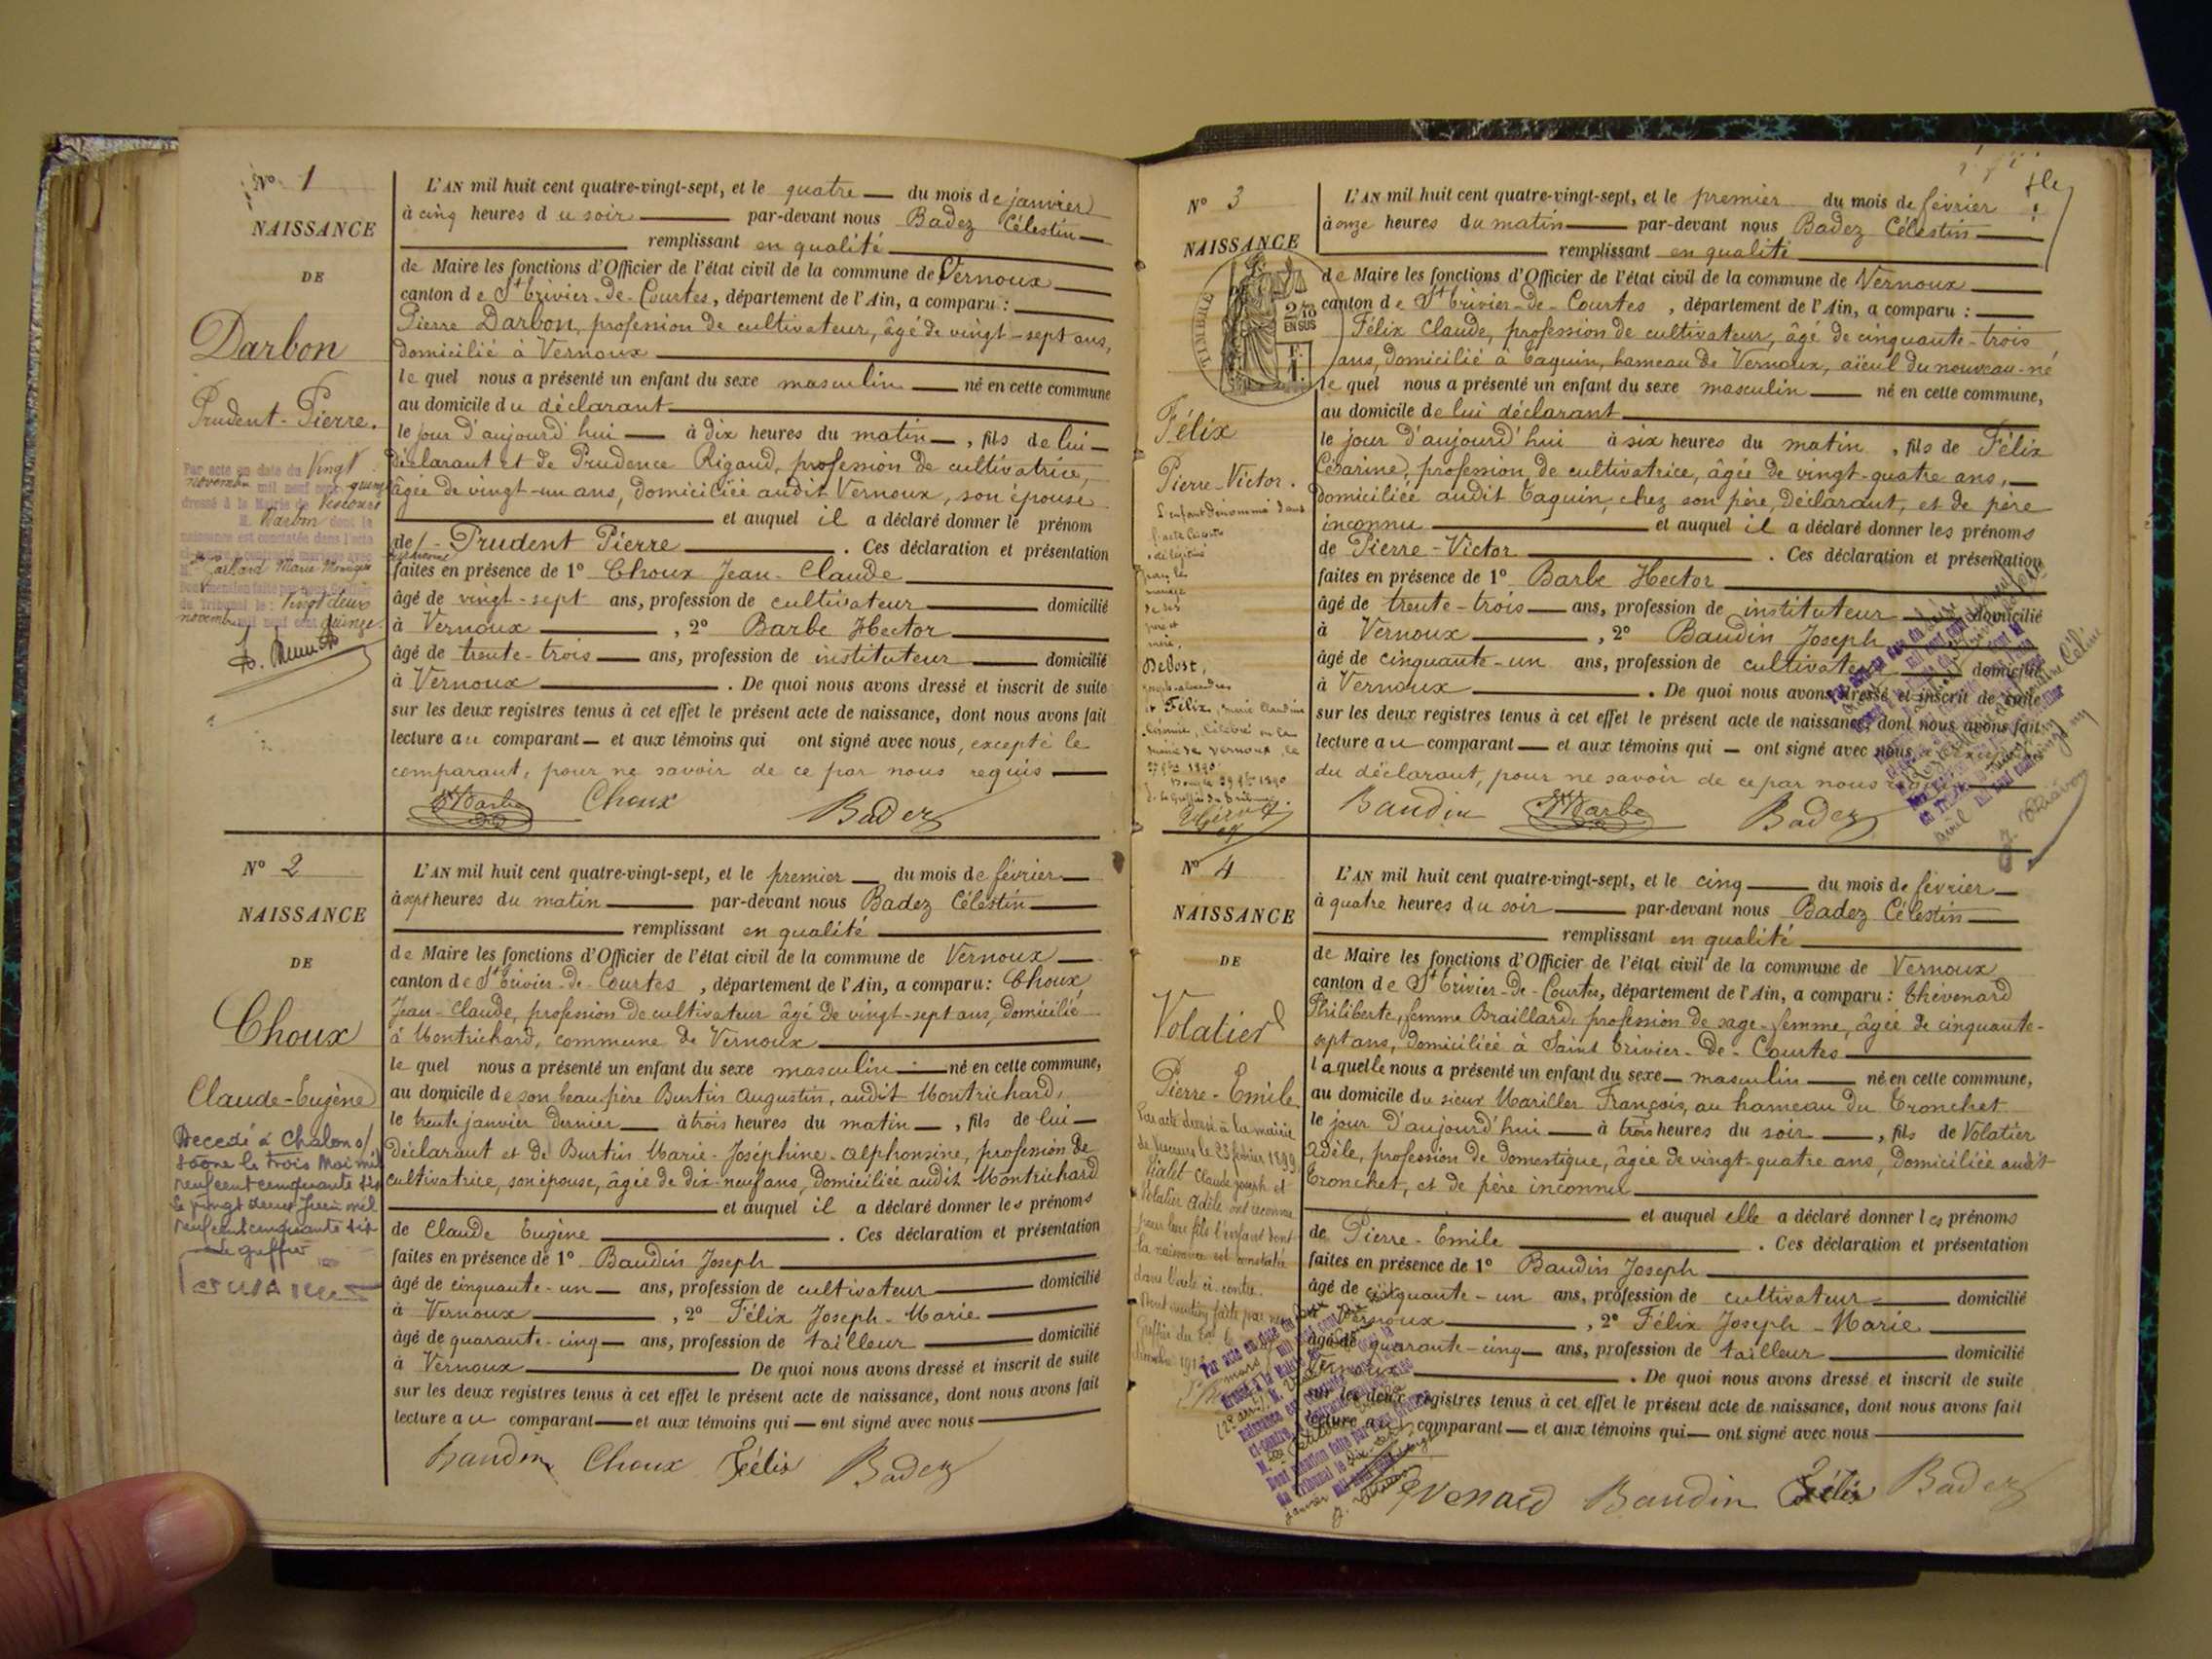 Nº 1
NAISSANCE
DE
Darbon
Prudent-Pierre.
Par acte en date du Vingt
novembre mil neuf cent quinze
dressé à la Mairie de Vescours
M. Darbon dont la
naissance est constatée dans l'acte
ci-contre a contracté mariage avec
M
du Tribunal le: Vingt deux
novembre mil neuf cent quinze.
L'AN mil huit cent quatre-vingt-sept, et le quatre du mois de janvier
à cinq heures du soir par-devant nous Badez Célestin
remplissant en qualité
de Maire les fonctions d'Officier de l'état civil de la commune de Vernoux
canton de St Trivier-de-Courtes, département de l'Ain, a comparu :
Pierre Darbon, profession de cultivateur, âgé de vingt-sept ans,
domicilié à Vernoux
lequel nous a présenté un enfant du sexe masculin né en cette commune
au domicile du déclarant
le jour d'aujourd'hui à dix heures du matin, fils de lui
déclarant et de Prudence Rigaud, profession de cultivatrice,
âgée de vingt-un ans, domiciliée audit Vernoux, son épouse
et auquel il a déclaré donner le prénom
de Prudent Pierre. Ces déclaration et présentation
faites en présence de 1º Choux Jean-Claude
âgé de vingt-sept ans, profession de cultivateur domicilié
à Vernoux, 2º Barbe Hector
âgé de trente-trois ans, profession de instituteur domicilié
à Vernoux. De quoi nous avons dressé et inscrit de suite
sur les deux registres tenus à cet effet le présent acte de naissance, dont nous avons fait
lecture au comparant et aux témoins qui ont signé avec nous, excepté le
comparant, pour ne savoir de ce par nous requis
HBarbe Choux Badez
Nº 2
NAISSANCE
DE
Choux
Claude-Eugène
Decedé à Chalon s/
Saône le trois Mai mil
neuf cent cinquante six
Le vingt deux Juin mil
neuf cent cinquante six
Le greffier
L'AN mil huit cent quatre-vingt-sept, et le premier du mois de février
à sept heures du matin par-devant nous Badez Célestin
remplissant en qualité
de Maire les fonctions d'Officier de l'état civil de la commune de Vernoux
canton de St Trivier-de-Courtes, département de l'Ain, a comparu : Choux
Jean-Claude, profession de cultivateur âgé de vingt-sept ans, domicilié
à Montrichard, commune de Vernoux
lequel nous a présenté un enfant du sexe masculin né en cette commune,
au domicile de son beau père Burtin Augustin, audit Montrichard,
le trente janvier dernier à trois heures du matin, fils de lui
déclarant et de Burtin Marie-Joséphine-Alphonsine, profession de
cultivatrice, son épouse, âgée de dix-neuf ans, domiciliée audit Montrichard
et auquel il a déclaré donner les prénoms
de Claude Eugène. Ces déclaration et présentation
faites en présence de 1º Baudin Joseph
âgé de cinquante-un ans, profession de cultivateur domicilié
à Vernoux, 2º Félix Joseph-Marie
âgé de quarante-cinq ans, profession de tailleur domicilié
à Vernoux De quoi nous avons dressé et inscrit de suite
sur les deux registres tenus à cet effet le présent acte de naissance, dont nous avons fait
lecture au comparant et aux témoins qui ont signé avec nous
Baudin Choux Félix Badez
Nº 3
NAISSANCE
TIMBRE
2/10
EN SUS
Félix
Pierre-Victor.
L'enfant dénommé dans
l'acte ci-contre
a été légitimé
par le
mariage
de ses
père et
mère,
Debost,
et Félix, Marie Claudine
Césarine, célébré en la
mairie de Vernoux, le
L'AN mil huit cent quatre-vingt-sept, et le premier du mois de février
à onze heures du matin par-devant nous Badez Célestin
remplissant en qualité
de Maire les fonctions d'Officier de l'état civil de la commune de Vernoux
canton de St Trivier-de-Courtes, département de l'Ain, a comparu :
Félix Claude, profession de cultivateur, âgé de cinquante-trois
ans, domicilié à Taquin, hameau de Vernoux, aïeul du nouveau-né
lequel nous a présenté un enfant du sexe masculin né en cette commune,
au domicile de lui déclarant
le jour d'aujourd'hui à six heures du matin, fils de Félix
Césarine, profession de cultivatrice, âgée de vingt-quatre ans,
domiciliée audit Taquin, chez son père, déclarant, et de père
inconnu et auquel il a déclaré donner les prénoms
de Pierre-Victor. Ces déclaration et présentation
faites en présence de 1º Barbe Hector
âgé de trente-trois ans, profession de instituteur domicilié
à Vernoux, 2º Baudin Joseph
âgé de cinquante-un ans, profession de cultivateur domicilié
à Vernoux. De quoi nous avons dressé et inscrit de suite
sur les deux registres tenus à cet effet le présent acte de naissance, dont nous avons fait
lecture au comparant et aux témoins qui ont signé avec nous
du déclarant, pour ne savoir de ce par nous requis
Baudin Hr Barbe Badez
Nº 4
NAISSANCE
DE
Volatier
Pierre-Emile
Par acte dressé à la mairie
de Vescours le 23 février 1899
Vialet Claude Joseph et
Volatier Adèle ont reconnu
pour leur fils l'enfant dont
la naissance est constatée
dans l'acte ci-contre.
Dont mention faite par nous
L'AN mil huit cent quatre-vingt-sept, et le cinq du mois de février
à quatre heures du soir par-devant nous Badez Célestin
remplissant en qualité
de Maire les fonctions d'Officier de l'état civil de la commune de Vernoux
canton de St Trivier-de-Courtes, département de l'Ain, a comparu : Thévenard
Philiberte, femme Braillard, profession de sage-femme, âgée de cinquante-
sept ans, domiciliée à Saint Trivier-de-Courtes
laquelle nous a présenté un enfant du sexe masculin né en cette commune,
au domicile du sieur Mariller François, au hameau du Tronchet
le jour d'aujourd'hui à trois heures du soir, fils de Volatier
Adèle, profession de domestique, âgée de vingt-quatre ans, domiciliée audit
Tronchet, et de père inconnu
et auquel elle a déclaré donner les prénoms
de Pierre-Emile. Ces déclaration et présentation
faites en présence de 1º Baudin Joseph
âgé de cinquante-un ans, profession de cultivateur domicilié
à Vernoux, 2º Félix Joseph-Marie
âgé de quarante-cinq ans, profession de tailleur domicilié
à Vernoux. De quoi nous avons dressé et inscrit de suite
sur les deux registres tenus à cet effet le présent acte de naissance, dont nous avons fait
lecture au comparant et aux témoins qui ont signé avec nous
Baudin Félix Badez